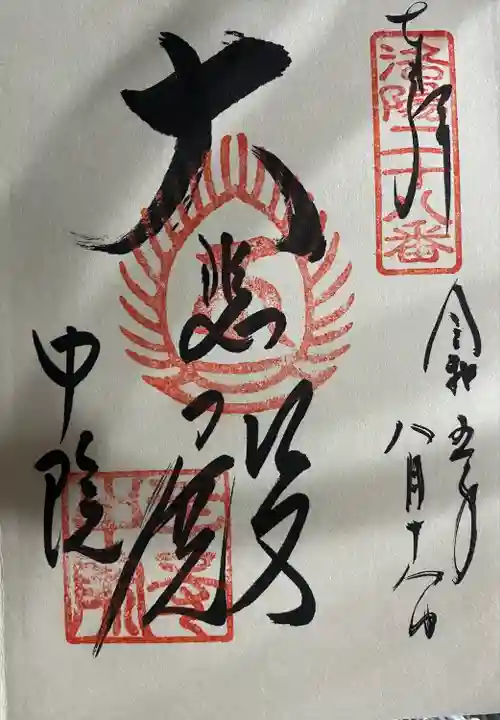 奉拝
洛陽二十八番
令和五年
八月十八日
大悲殿
中院